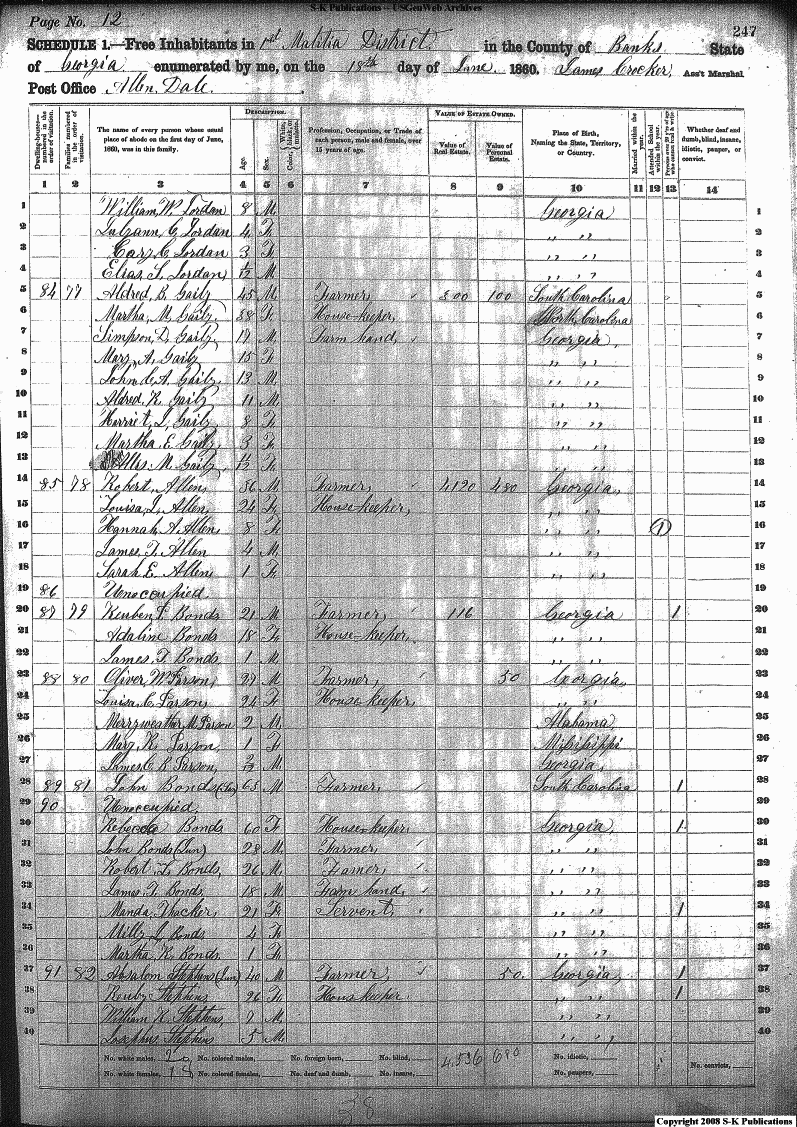 S-K Publications – USGenWeb Archives
Page No. 12
247
SCHEDULE 1.—Free Inhabitants in 1st Malitia District in the County of Banks State
of Georgia enumerated by me, on the 18th day of June 1860. James Crocker, Ass't Marshal
Post Office Allen Dale.
Dwelling-houses—numbered in the order of visitation.
Families numbered in the order of visitation.
The name of every person whose usual place of abode on the first day of June, 1860, was in this family.
DESCRIPTION.
Age.
Sex.
Color, White, black, or mulatto.
Profession, Occupation, or Trade of each person, male and female, over 15 years of age.
VALUE OF ESTATE OWNED.
Value of Real Estate.
Value of Personal Estate.
Place of Birth, Naming the State, Territory, or Country.
Married within the year.
Attended School within the year.
Persons over 20 y'rs of age who cannot read & write.
Whether deaf and dumb, blind, insane, idiotic, pauper, or convict.
1 2 3 4 5 6 7 8 9 10 11 12 13 14
1 William W. Jordan 8 M. Georgia 1
2 C. Jordan 4 F. " " 2
3 C. Jordan 3 F. " " 3
4 Elias S. Jordan /12 M. " " 4
5 84 77 Aldred, B. Gaily 45 M. Farmer, 800 100 South Carolina 5
6 Martha, M. Gaily 38 F. House keeper, North Carolina 6
7 Simpson, D. Gaily 17 M. Farm hand, Georgia, 7
8 Mary, A. Gaily 15 F. " " 8
9 A. Gaily 13 M. " " 9
10 Aldred, R. Gaily 11 M. " " 10
11 Harriet, J. Gaily 8 F. " " 11
12 Martha E. Gaily 3 F. " " 12
13 M. Gaily /12 F. " " 13
14 85 78 Robert, Allen, 36 M. Farmer, 4120 480 Georgia, 14
15 Louisa, J. Allen, 24 F. House keeper, " " 15
16 Hannah, A. Allen, 8 F. " " 1 16
17 James, T. Allen 4 M. " " 17
18 Sarah E. Allen, 1 F. " " 18
19 86 Unoccupied. 19
20 87 79 Reuben F. Bonds 21 M. Farmer, 116 Georgia 1 20
21 Adaline Bonds 18 F. House-keeper, " " 21
22 James, T. Bonds 1 M. " " 22
23 88 80 Oliver, W. Parson, 29 M. Farmer, 50 Georgia, 23
24 Louisa, C. Parson, 24 F. House keeper, " " 24
25 Merryweather, M. Parson 2 M. Alabama, 25
26 Mary, R. Parson, 1 F. Missisippi 26
27 James C. R. Parson, /12 M. Georgia, 27
28 89 81 John Bonds 65 M. Farmer, South Carolina 1 28
29 90 Unoccupied, 29
30 Rebecca Bonds 60 F. House-keeper, Georgia, 1 30
31 John Bonds (Jun) 28 M. Farmer, " " 31
32 Robert L. Bonds, 26 M. Farmer, " " 32
33 James, T. Bonds, 18 M. Farm hand, " " 33
34 Manda, Thacker, 21 F. Servent, " " 1 34
35 Milly, Bonds 4 F. " " 35
36 Martha R. Bonds 1 F. " " 36
37 91 82 Absalom Stephens (Jun) 40 M. Farmer, 50. Georgia, 1 37
38 Stephens, 26 F. House keeper. " " 1 38
39 William Stephens, M. " " 39
40 Josephus Stephens 5 M. " " 40
No. white males, 20 No. colored males, No. foreign born, No. blind, 4,536 680 No. idiotic, No. convicts,
No. white females, 18 No. colored females, No. deaf and dumb, No. insane, No. paupers,
38
Copyright 2008 S-K Publications